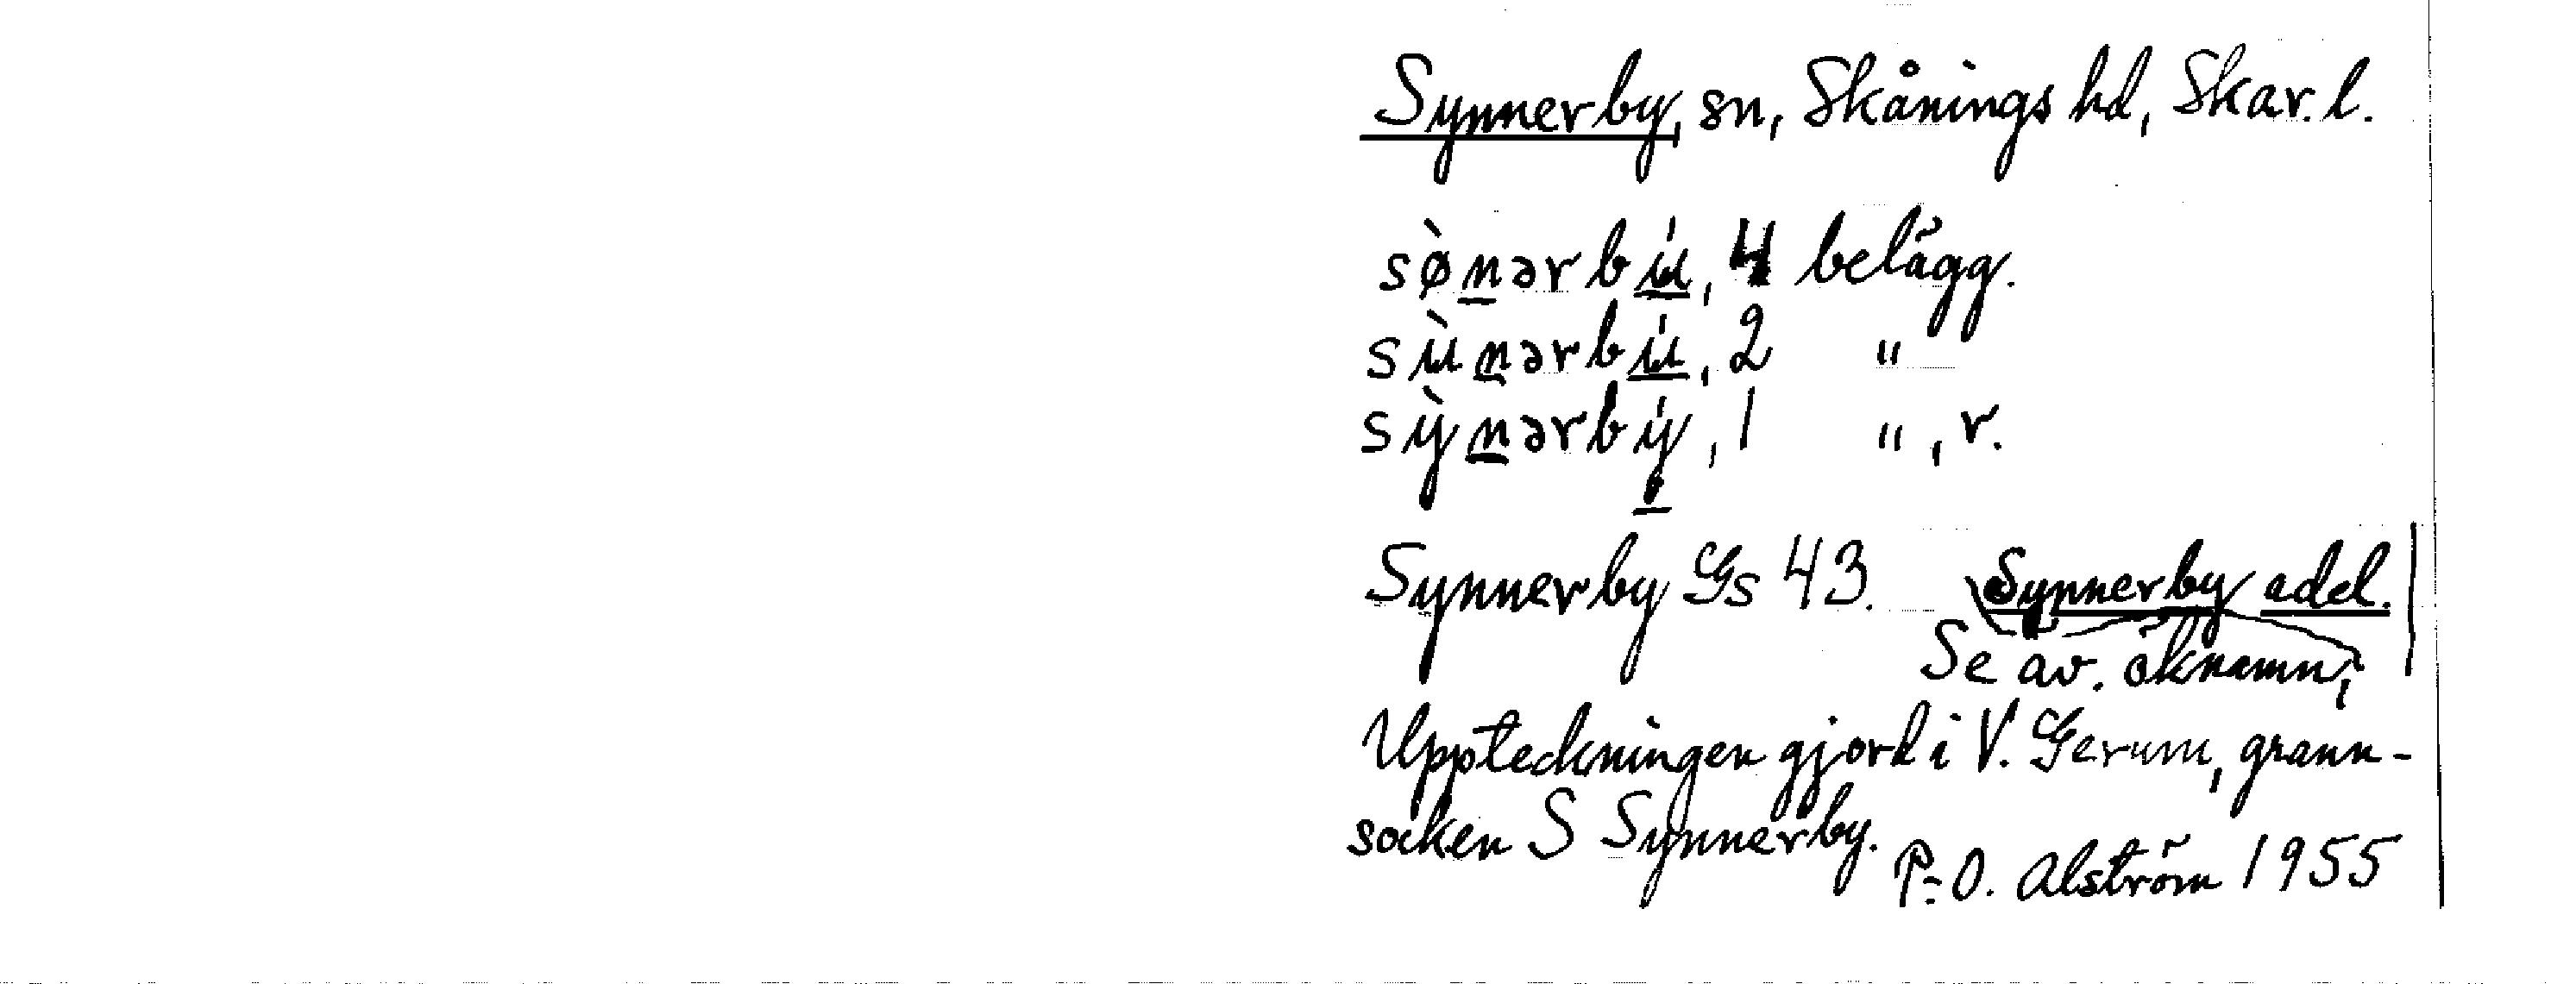 Synnerby, sn, Skånings hd, Skar. l.
sø̀nərbú, 4 belägg.
sùnərbú, 2 "
sỳnərbý, 1 ", r.
Synnerby Gs 43. Synnerby adel.
Se äv. öknamn,
Uppteckningen gjord i V. Gerum, grann-
socken S Synnerby.
P-O. Alström 1955